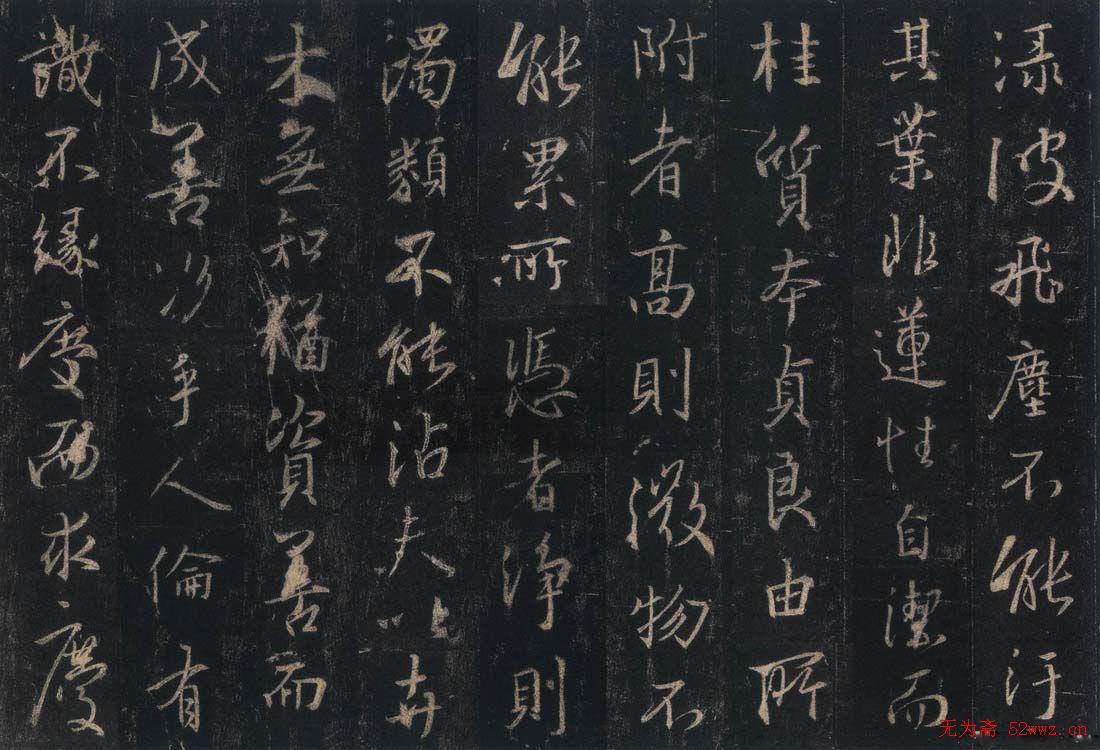 渌波飛塵不能汙
其葉非蓮性自潔而
桂質本貞良由所
附者高則微物不
能累所憑者淨則
濁類不能沾夫以卉
木無知猶資善而
成善况乎人倫有
識不緣慶而求慶
无为斋 52wwz.cn